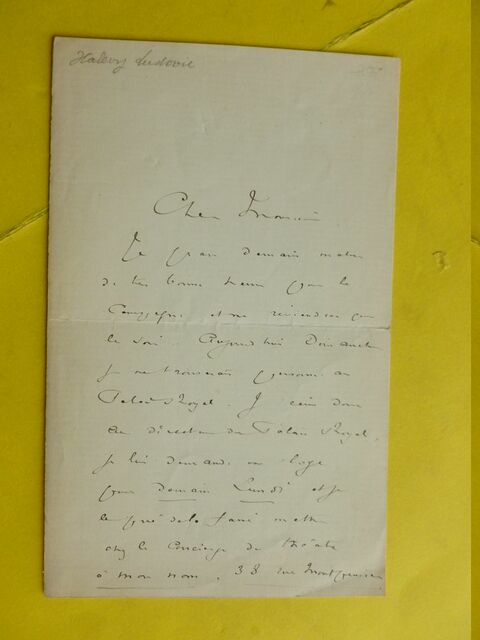 Halévy Ludovic
Cher Monsieur
Je pars demain matin
de très bonne heure pour la
Campagne et ne reviendrai que
le soir. Aujourd'hui Dimanche
je ne trouverais personne au
Palais Royal. J'écris donc
au directeur du Palais Royal,
je lui demande une loge
pour demain Lundi et je
le prie de la faire mettre
chez le Concierge du théâtre
à mon nom. 38 rue Montpensier